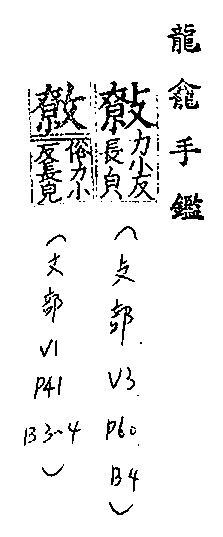 龍龕手鑑
力小反
長皃
(攴部 V3. P60. B4)
俗力小
反長皃
(文部 V1 P41 B3-4)